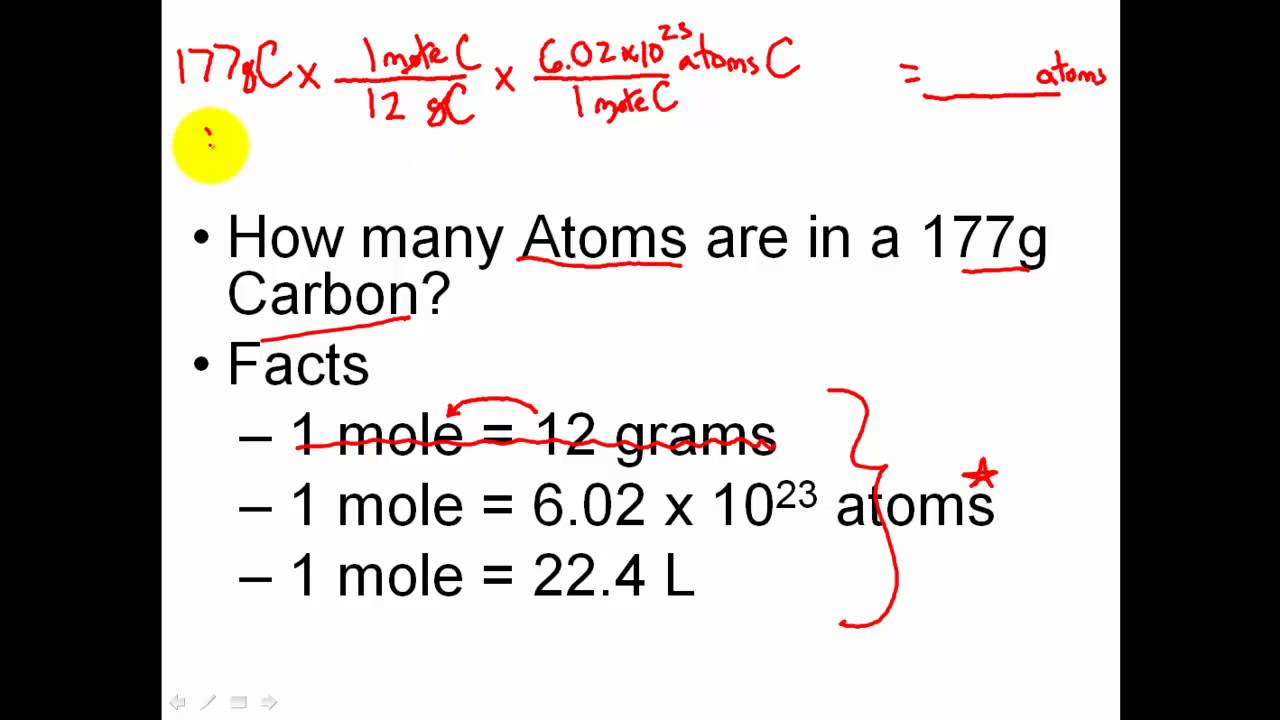 177gC x 1 mole C / 12 gC x 6.02x10²³ atoms C / 1 mole C = ______ atoms
• How many Atoms are in a 177g
Carbon?
• Facts
– 1 mole = 12 grams
– 1 mole = 6.02 x 10²³ atoms
– 1 mole = 22.4 L